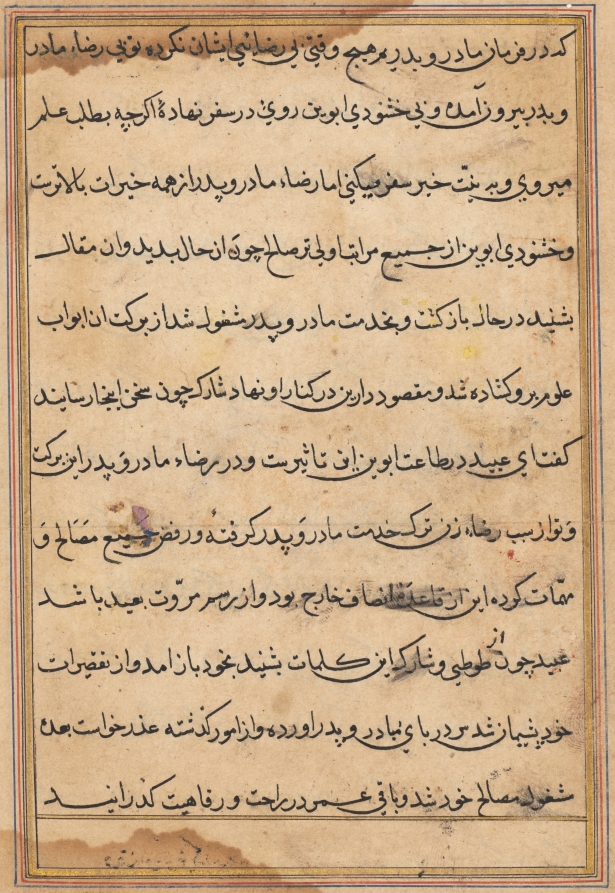 که در فرمان مادر و پدر بر هیچ وقتی بی رضائی ایشان نکرده توبی رضاء مادر
و پدر بیرون آمدهٔ و بی خشنودی ابوین روی در سفر نهادهٔ اکرچه بطلب علم
میروی و به نیّت خیر سفر میکنی اما رضاء مادر و پدر از همه خیرات بالاترست
و خشنودی ابوین از جمیع مراتب اولی تر صالح چون ان حال بدید وان مقالـ
بشنید در حال باز کشت و بخدمت مادر و پدر مشغول شد از برکت ان ابواب
علوم برو کشاده شد و مقصود دارین در کنار او نهاد شارک چون سخن اینجا رسانید
کفت ای عبید در طاعت ابوین این تاثیرست و در رضاء مادر و پدر این برکت
و تو از سبب رضاء زن ترک خدمت مادر و پدر کرفتهٔ و رفض جمیع مصالح و
مهمّات کرده این از قاعدهٔ انصاف خارج بود و از رسم مروّت بعید باشد
عبید چون از طوطی و شارک این کلمات بشنید بخود باز امد و از تقصیرات
خود پشیمان شد سر در پای مادر و پدر اورده و از امور کذشته عذر خواست بعده
مشغول مصالح خود شد و باقی عمر در راحت و رفاهیت کذرانید